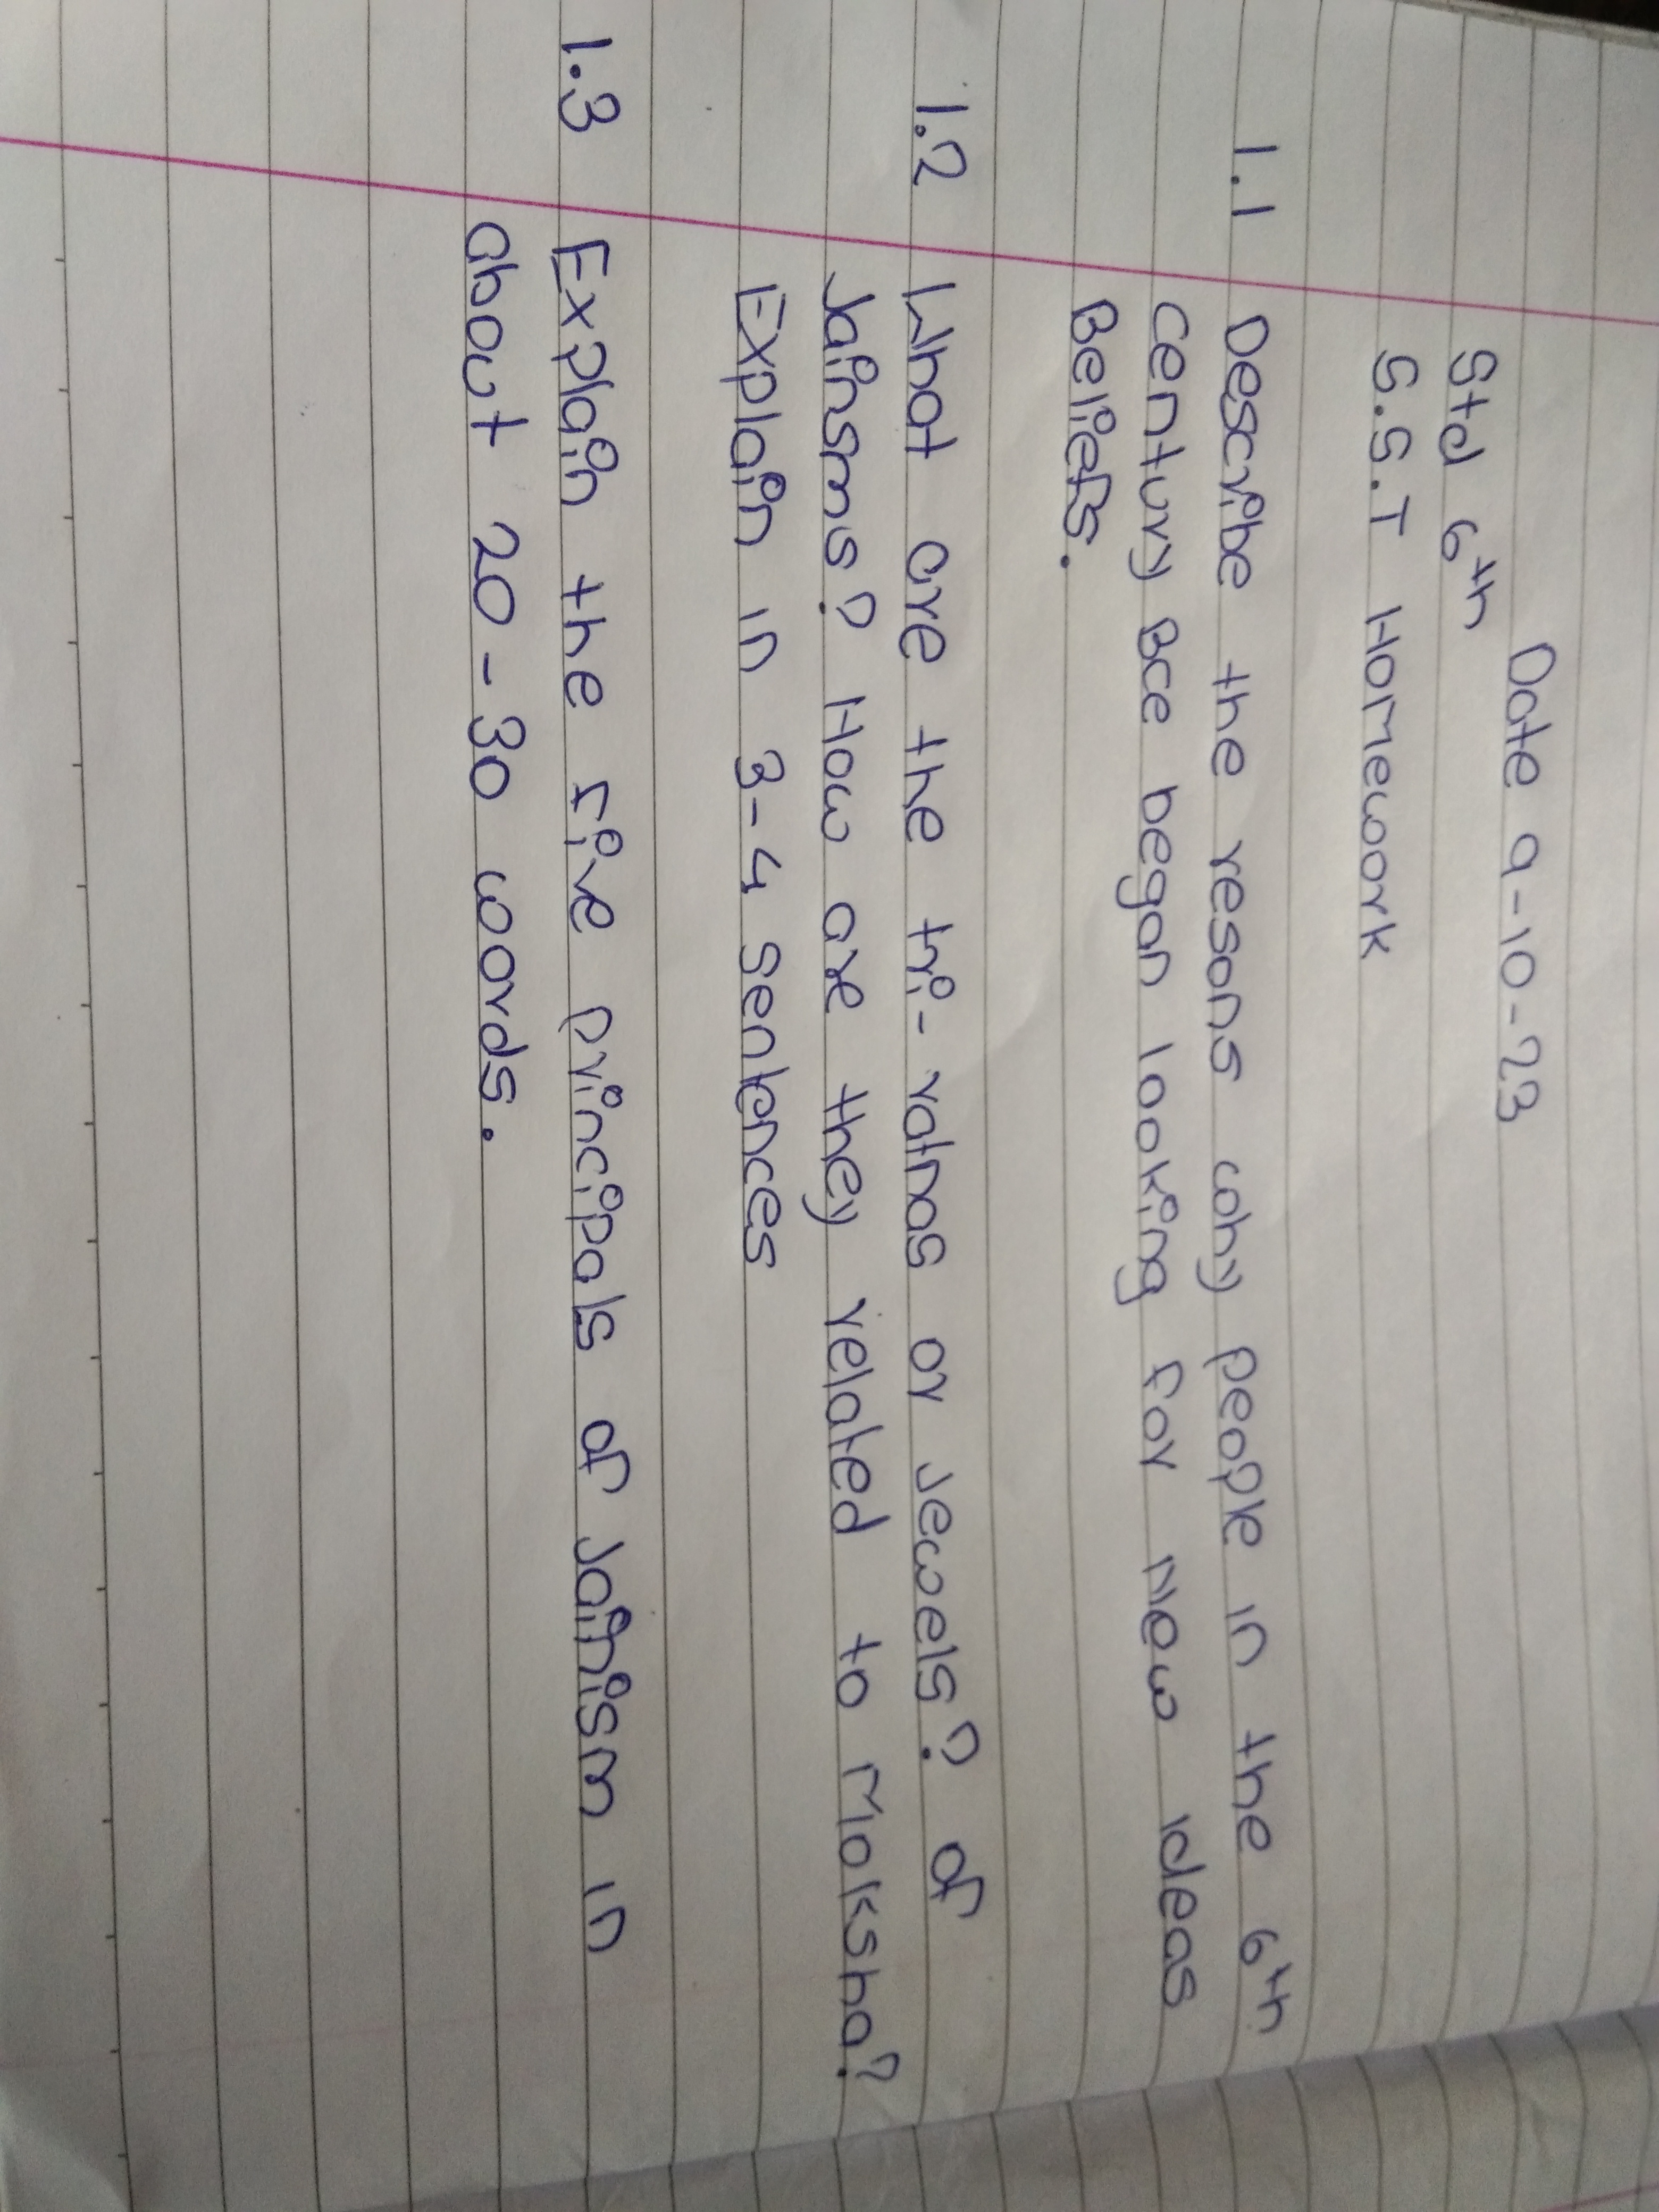 Date 9-10-23
Std 6th
S.S.T Homework
1.1 Describe the resons why people in the 6th
century Bce began looking for new ideas
Beliefs.
1.2 What are the tri-ratnas or Jewels? of
Jainsms? How are they related to Moksha?
Explain in 3-4 sentences
1.3 Explain the five principals of Jainism in
about 20-30 words.